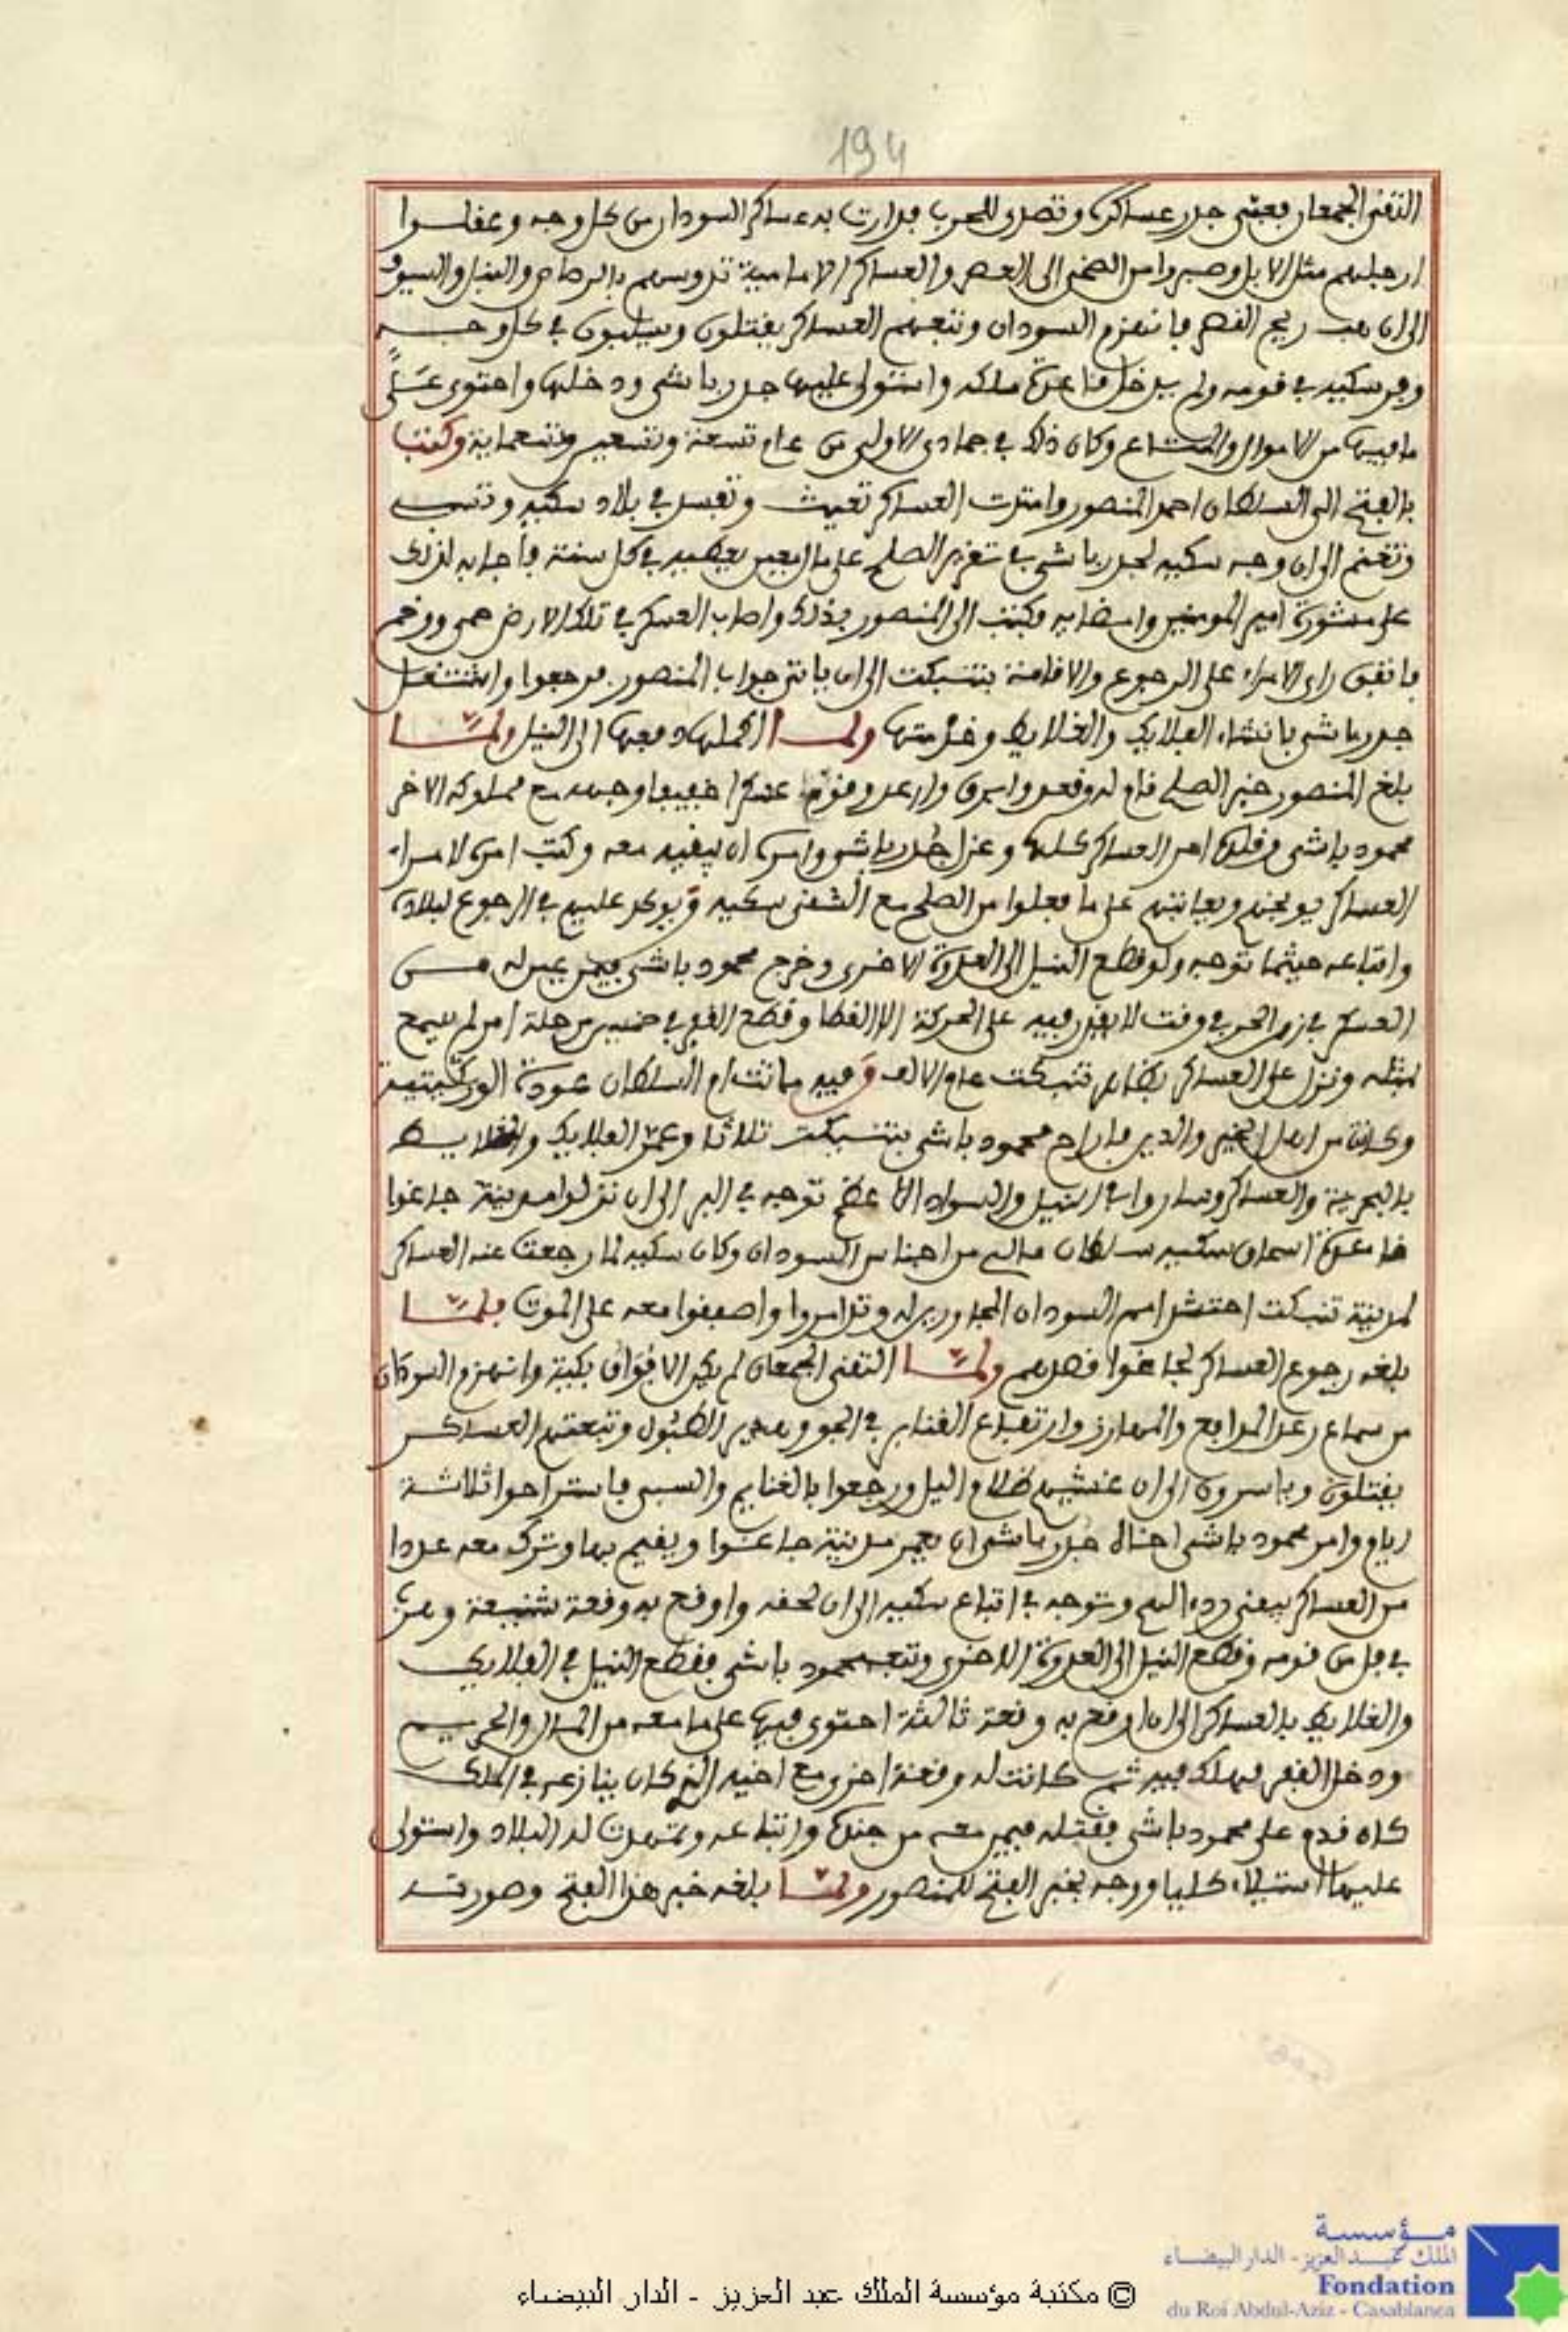 194
التقى الجمعان فعبى جدر عساكره وتصدى للحرب فدارت به عساكر السودان من كل وجه وعقلوا
ارجلهم مثل الابل وصبروا من الضحى الى العصر والعساكر الامامية تدوسهم بالرصاص والنبل والسيوف
الى ان هب ريح النصر فانهزم السودان وتبعهم العساكر يقتلون ويسلبون في كل وجه
وفر سكيه في قومه ولم يدخل قاعدة ملكه واستولى عليها جدر باشى ودخلها واحتوى على
ما فيها من الاموال والمتاع وكان ذلك في جمادى الاولى من عام تسعة وتسعين وتسعماية وكتب
بالفتح الى السلطان احمد المنصور وامتدت العساكر تعيث وتفسد في بلاد سكيه وتسبي
وتغنم الى ان وجه سكيه لجدر باشى في تقرير الصلح على مال معين يعطيه في كل سنة فاجابه لذلك
على مشورة امير المومنين وامضايه فكتب الى المنصور بذلك واصاب العسكر في تلك الارض حمى ووخم
فاتفق راى الامراء على الرجوع والاقامة بتنبكت الى ان ياتى جواب المنصور فرجعوا واشتغل
جدر باشى بانشاء الفلايك والغلايط وخدمتها ولما اكملها دفعها الى النيل ولما
بلغ المنصور خبر الصلح قام له وقعد وابرق وارعد وقوم عسكرا خفيفا وجهه مع مملوكه الاخر
محمود باشى وقلده امر العساكر كلها وعزل جدر باشى وامره ان يقيد معه وكتب امره لامراء
العساكر يوبخهم ويعاتبهم على ما فعلوا من الصلح مع الشقى سكيه ويوكد عليهم في الرجوع لبلاده
واتباعه حيثما توجه ولو قطع النيل الى العدوة الاخرى وخرج محمود باشى فيمن عين له من
العسكر في زمن الحر في وقت لا يقدر فيه على الحركة الا القطا وقطع القفر في خمسين مرحلة امر لم يسمع
بمثله ونزل على العساكر بظاهر تنبكت عام الالف وفيه ماتت ام السلطان عودة الوزكيتية
وكانت من اهل الخير والدين فاراح محمود باشى بتنبكت ثلاثا وعمر الفلايك والغلايط
بالبحرية والعساكر وساروا في النيل والسواد الاعظم توجه في البر الى ان نزلوا مدينة جاغوا
قاعدة اسحاق سكيه سلطان مالى من اجناس السودان وكان سكيه لما رجعت عنه العساكر
لمدينة تنبكت احتشد امم السودان المجاورين له وتدامروا واصفقوا معه على الموت فلما
بلغه رجوع العساكر لجاغوا قصدهم ولما التقى الجمعان لم يكن الا فواق بكية وانهزم السودان
من سماع رعد المدافع والمهارز وارتفاع القنابر في الجو وهدير الطبول وتبعتهم العساكر
يقتلون وياسرون الى ان غشيهم ظلام اليل ورجعوا بالغنايم والسبى فاستراحوا ثلاثة
ايام وامر محمود باشى اخاه جدر باشى ان يعمر مدينة جاغوا ويقيم بها وترك معه عددا
من العساكر يبقى ردءا لهم وتوجه في اتباع سكيه الى ان لحقه واوقع به وقعة شنيعة وفر
في فل من قومه وقطع النيل الى العدوة الاخرى وتبعه محمود باشى فقطع النيل في الفلايك
والغلايط بالعساكر الى ان اوقع به وقعة ثالثة احتوى فيها على ما معه من المال والحريم
ودخل القفر فهلك فيه ثم كانت له وقعة اخرى مع اخيه الذى كان ينازعه في الملك
كان قدم على محمود باشى فقتله فيمن معه من جنده واتباعه وتمهدت له البلاد واستولى
عليها استيلاء كليا ووجه بخبر الفتح للمنصور ولما بلغه خبر هذا الفتح وصورته
مؤسسة
الملك عبد العزيز - الدار البيضاء
Fondation
du Roi Abdul-Aziz - Casablanca
© مكتبة مؤسسة الملك عبد العزيز - الدار البيضاء